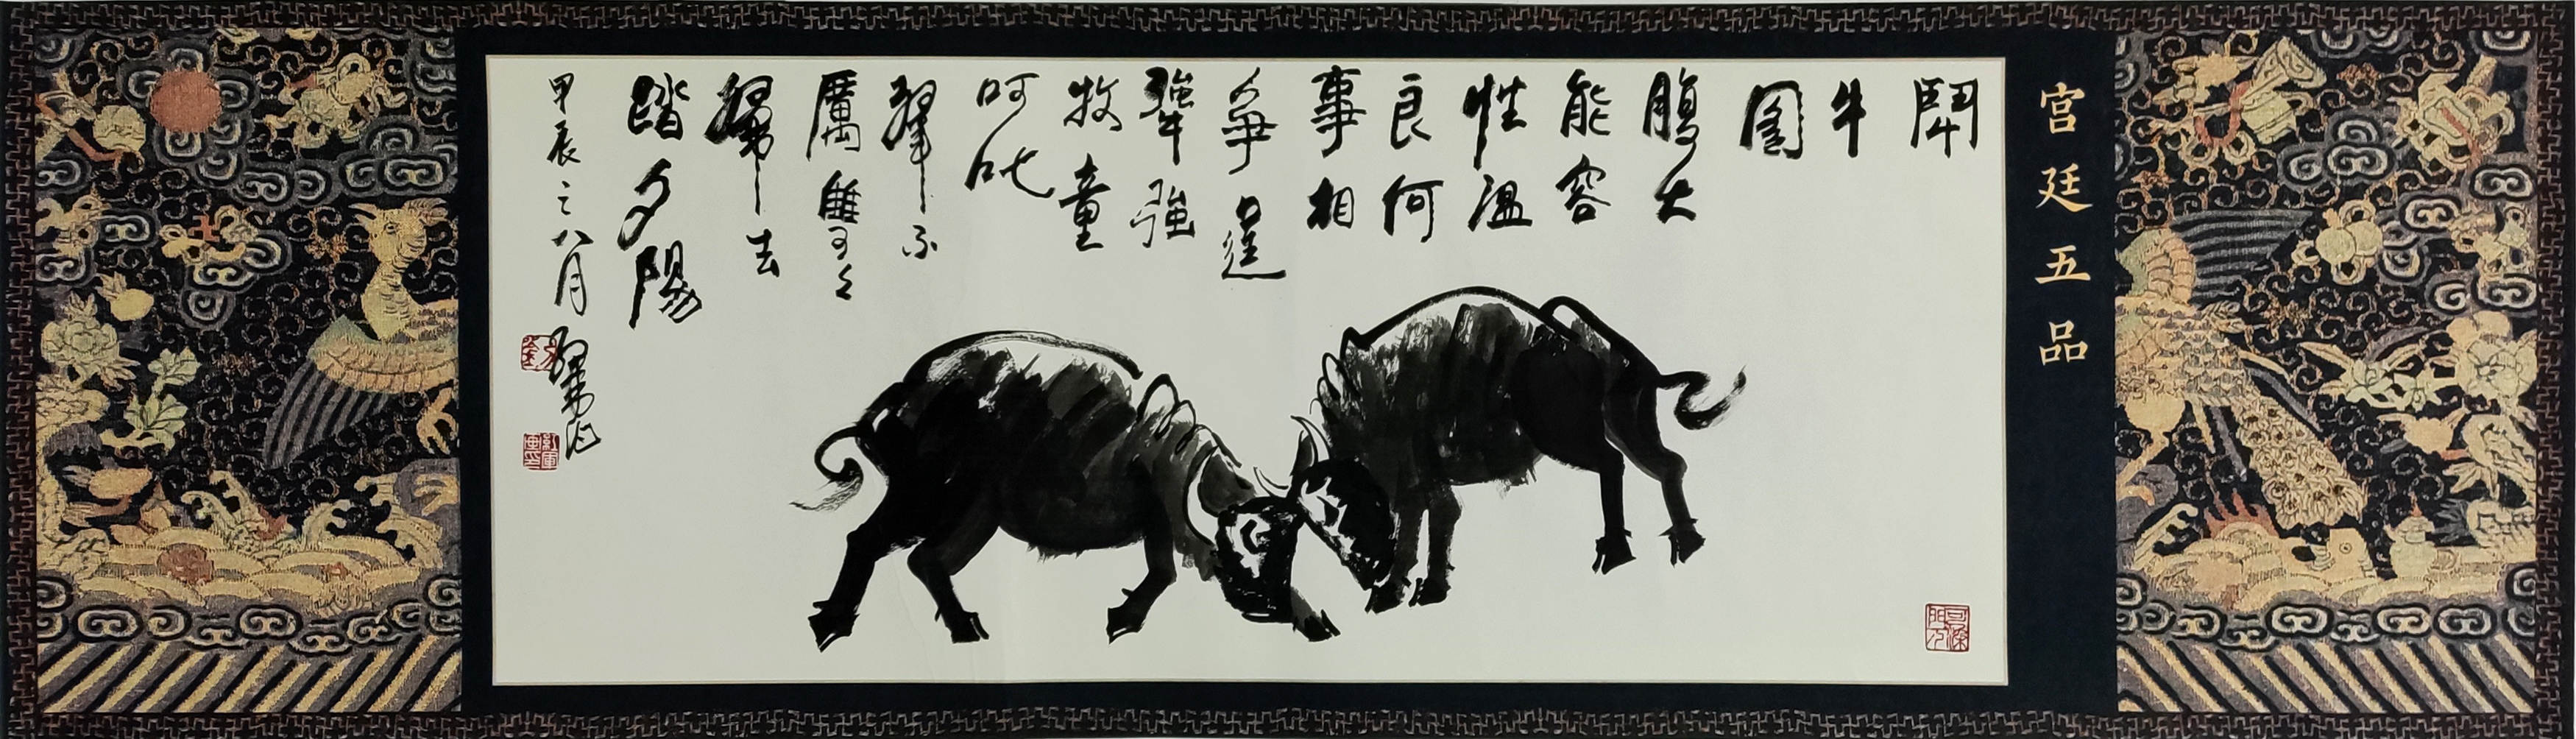 宫廷五品
鬥
牛
圖
腹大
能容
性温
良何
事相
爭逞
犟強
牧童
呵叱
聲不
厲雙々
歸去
踏夕陽
甲辰之八月